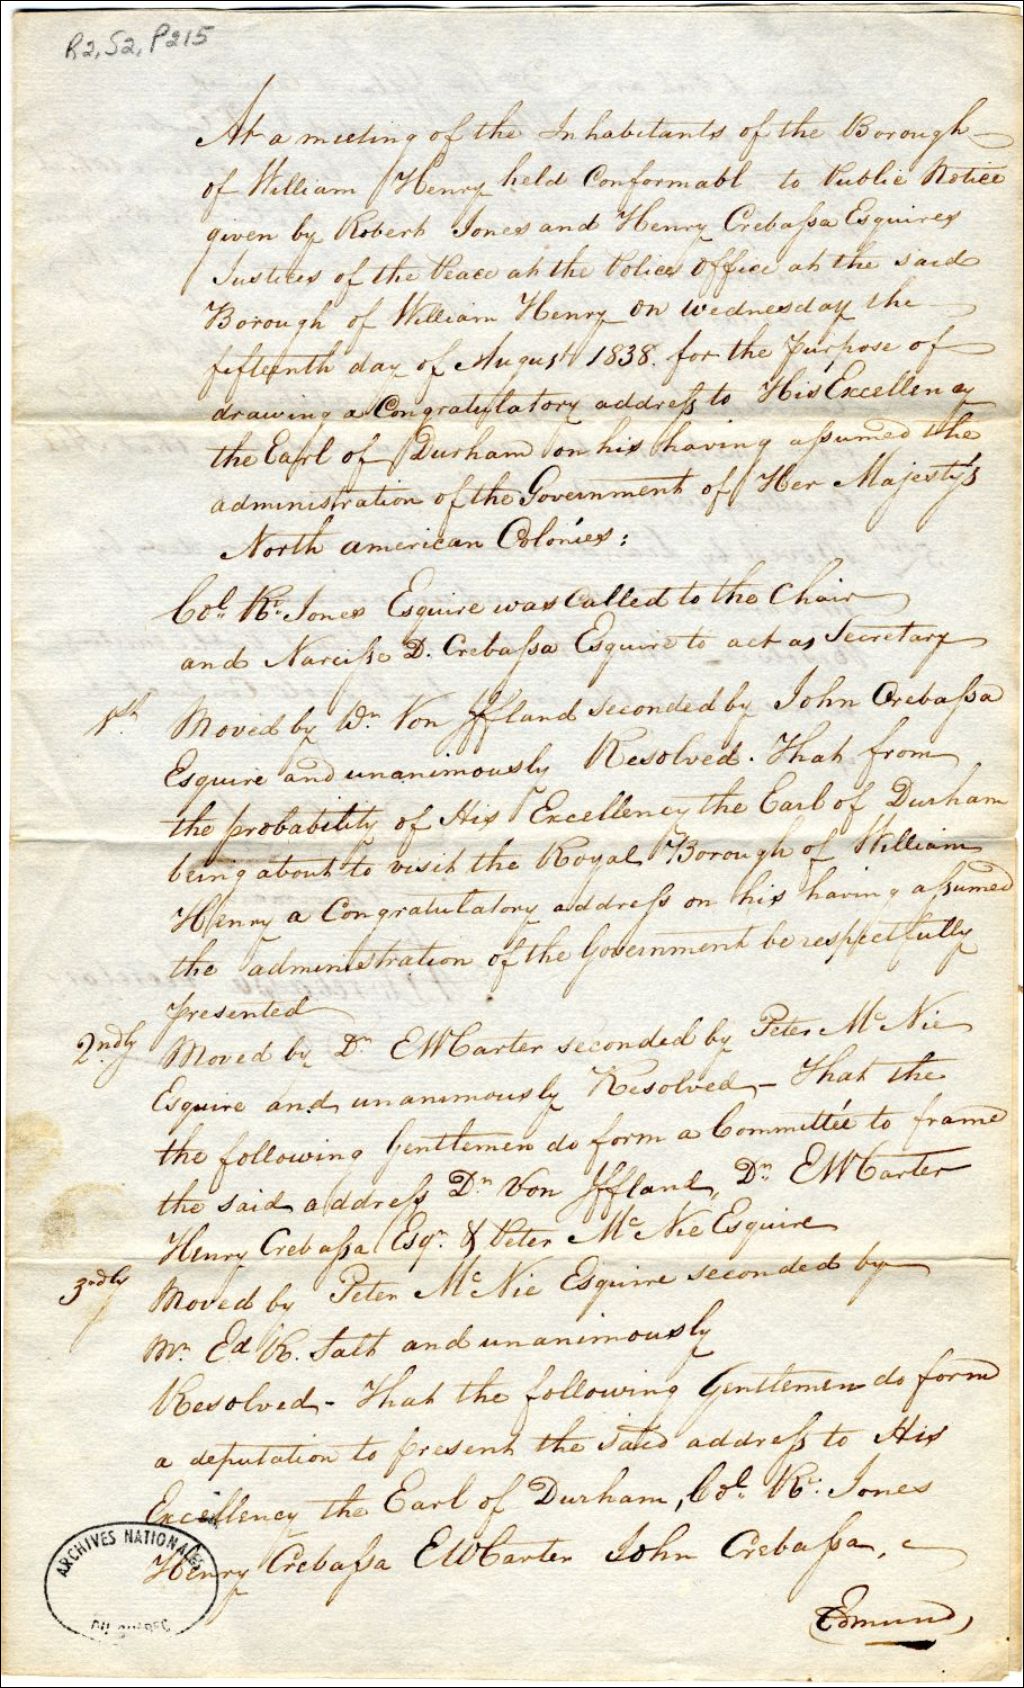 R2, S2, P215
At a meeting of the Inhabitants of the Borough
of William Henry held Conformabl to Public Notice
given by Robert Jones and Henry Crebassa Esquires
Justices of the Peace at the Police Office at the said
Borough of William Henry on Wednesday the
fifteenth day of August 1838. for the Purpose of
drawing a Congratulatory address to His Excellency
the Earl of Durham on his having assumed the
administration of the Government of Her Majesty's
North american Colonies:
Col. Rt. Jones Esquire was Called to the Chair
and Narcisse D. Crebassa Esquire to act as Secretary
1st. Moved by Dr. Von Iffland seconded by John Crebassa
Esquire and unanimously Resolved. That from
the probability of His Excellency the Earl of Durham
being about to visit the Royal Borough of William
Henry a Congratulatory address on his having assumed
the administration of the Government be respectfully
presented
2ndly Moved by Dr. EWCarter seconded by Peter McNie
Esquire and unanimously Resolved - That the
the following Gentlemen do form a Committee to frame
the said address Dr. Von Iffland, Dr. EWCarter
Henry Crebassa Esqr. & Peter McNie Esquire
3rdly Moved by Peter McNie Esquire seconded by
Mr. Ed R. Salt and unanimously
Resolved - That the following Gentlemen do form
a deputation to present the said address to His
Excellency the Earl of Durham, Col. Rt. Jones
Henry Crebassa EWCarter John Crebassa,
Edmund
ARCHIVES NATIONALES
DU QUÉBEC